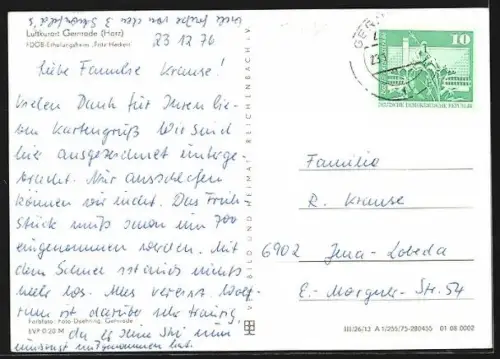 viele Grüße von den 3 Schönfeld's
Luftkurort Gernrode (Harz)
FDGB-Erholungsheim „Fritz Heckert"
23 12 76
Liebe Familie Krause!
Vielen Dank für Ihren lie-
ben Kartengruß Wir sind
hier ausgezeichnet unterge
bracht. Nur ausschlafen
können wir nicht. Das Früh
stück muß schon um 700
eingenommen werden. Mit
dem Schnee ist auch nichts
mehr los. Alles vereist. Wolf-
ram ist darüber sehr traurig,
da er seine Ski nun
umsonst mitgenommen hat.
Farbfoto: Foto-Doehring, Gernrode
EVP 0,20 M
BILD UND HEIMAT REICHENBACH I. V.
GERN
23.1
10
DEUTSCHE DEMOKRATISCHE REPUBLIK
Familie
R. Krause
6902 Jena-Lobeda
E.-Margner-Str. 54
III/26/13 A 1/255/75-280455 01 08 0002